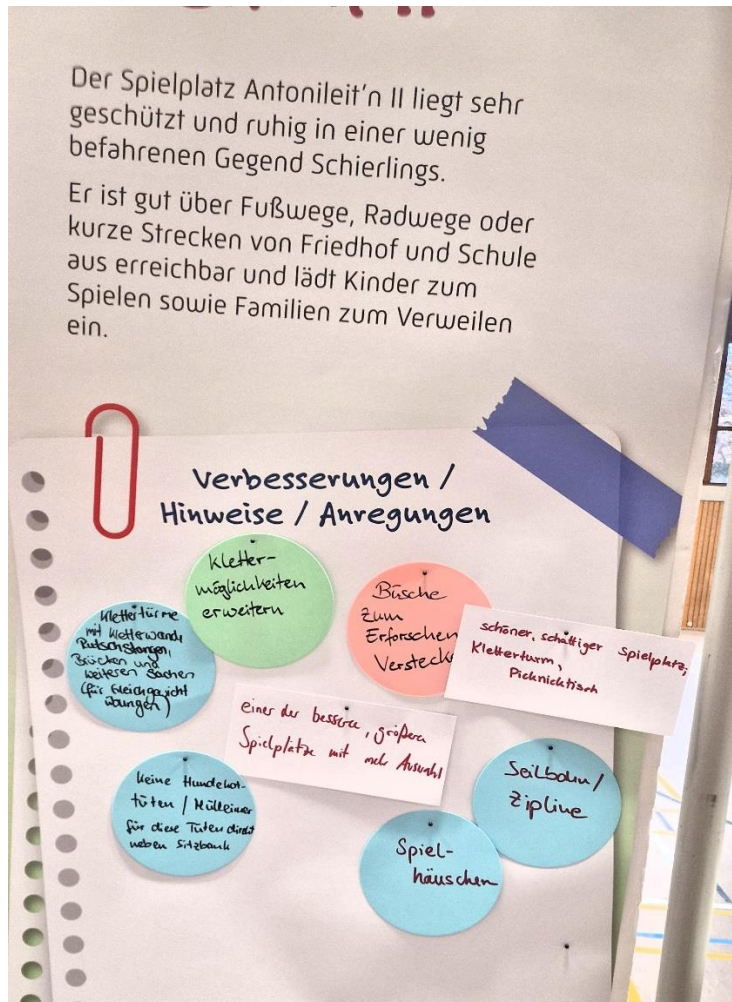 Der Spielplatz Antonileit'n II liegt sehr
geschützt und ruhig in einer wenig
befahrenen Gegend Schierlings.
Er ist gut über Fußwege, Radwege oder
kurze Strecken von Friedhof und Schule
aus erreichbar und lädt Kinder zum
Spielen sowie Familien zum Verweilen
ein.
Verbesserungen /
Hinweise / Anregungen
Kletter-
möglichkeiten
erweitern
Büsche
zum
Erforschen
Versteck
Klettertürme
mit Kletterwand,
Rutschstangen,
Brücken und
weiteren Sachen
(für Gleichgewicht
übungen)
schöner, schattiger Spielplatz;
Kletterturm,
Picknicktisch
einer der bessere, größere
Spielplätze mit mehr Auswahl
Seilbahn/
Zipline
keine Hundekot-
tüten / Mülleimer
für diese Tüten direkt
neben Sitzbank
Spiel-
häuschen